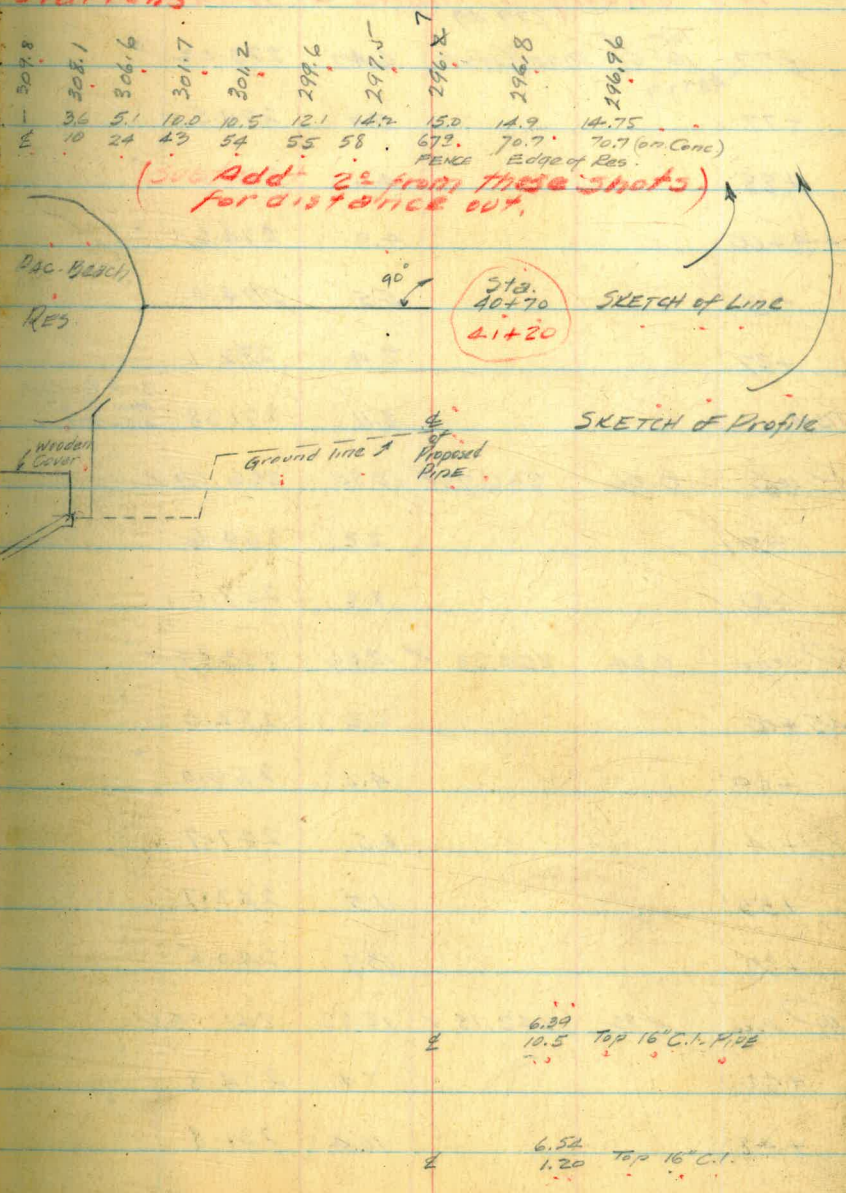 Stations
309.8 308.1 306.6 301.7 301.2 299.6 297.5 296.8 7 296.8 296.96
- 3.6 5.1 10.0 10.5 12.1 14.2 15.0 14.9 14.75
℄ 10 24 43 54 55 58 67⁹ 70.7 70.7 (on Conc)
FENCE Edge of Res.
( Add 2⁰ from these shots)
for distance out.
Pac. Beach
RES.
90°
Sta.
40+70
41+20
SKETCH of Line
SKETCH of Profile
Wooden
Cover
Ground line
℄
of
Proposed
PIPE
6.39
℄ 10.5 Top 16" C.I. PIPE
6.54
℄ 1.20 Top 16" C.I.